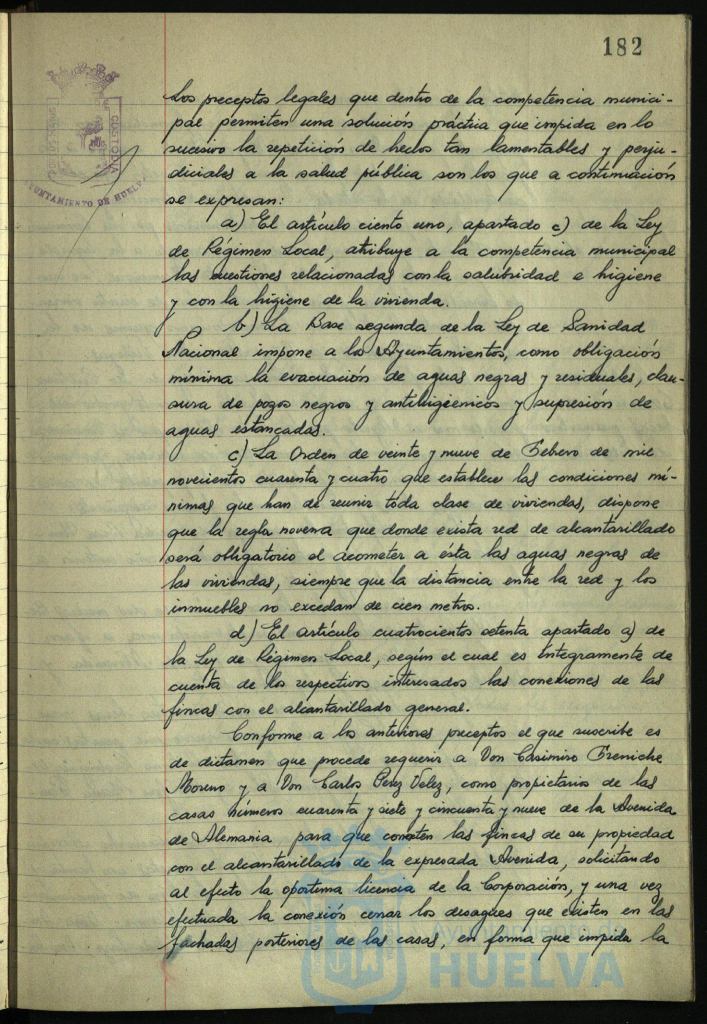 182
CUSTODIA
AYUNTAMIENTO DE HUELVA
Los preceptos legales que dentro de la competencia munici-
pal permiten una solución práctica que impida en lo
sucesivo la repetición de hechos tan lamentables y perju-
diciales a la salud pública son los que a continuación
se expresan:
a) El artículo ciento uno, apartado c) de la Ley
de Régimen Local, atribuye a la competencia municipal
las cuestiones relacionadas con la salubridad e higiene
y con la higiene de la vivienda.
b) La Base segunda de la Ley de Sanidad
Nacional impone a los Ayuntamientos, como obligación
mínima la evacuación de aguas negras y residuales, clau-
sura de pozos negros y antihigiénicos y supresión de
aguas estancadas.
c) La Orden de veinte y nueve de Febrero de mil
novecientos cuarenta y cuatro que establece las condiciones mí-
nimas que han de reunir toda clase de viviendas, dispone
que la regla novena que donde exista red de alcantarillado
será obligatorio el acometer a ésta las aguas negras de
las viviendas, siempre que la distancia entre la red y los
inmuebles no excedan de cien metros.
d) El artículo cuatrocientos setenta apartado a) de
la Ley de Régimen Local, según el cual es íntegramente de
cuenta de los respectivos interesados las conexiones de las
fincas con el alcantarillado general.
Conforme a los anteriores preceptos el que suscribe es
de dictamen que procede requerir a Don Casimiro Freniche
Moreno y a Don Carlos Perez Velez, como propietarios de las
casas números cuarenta y siete y cincuenta y nueve de la Avenida
de Alemania para que conecten las fincas de su propiedad
con el alcantarillado de la expresada Avenida, solicitando
al efecto la oportuna licencia de la Corporación, y una vez
efectuada la conexión cerrar los desagües que existen en las
fachadas posteriores de las casas, en forma que impida la
Ayuntamiento
HUELVA